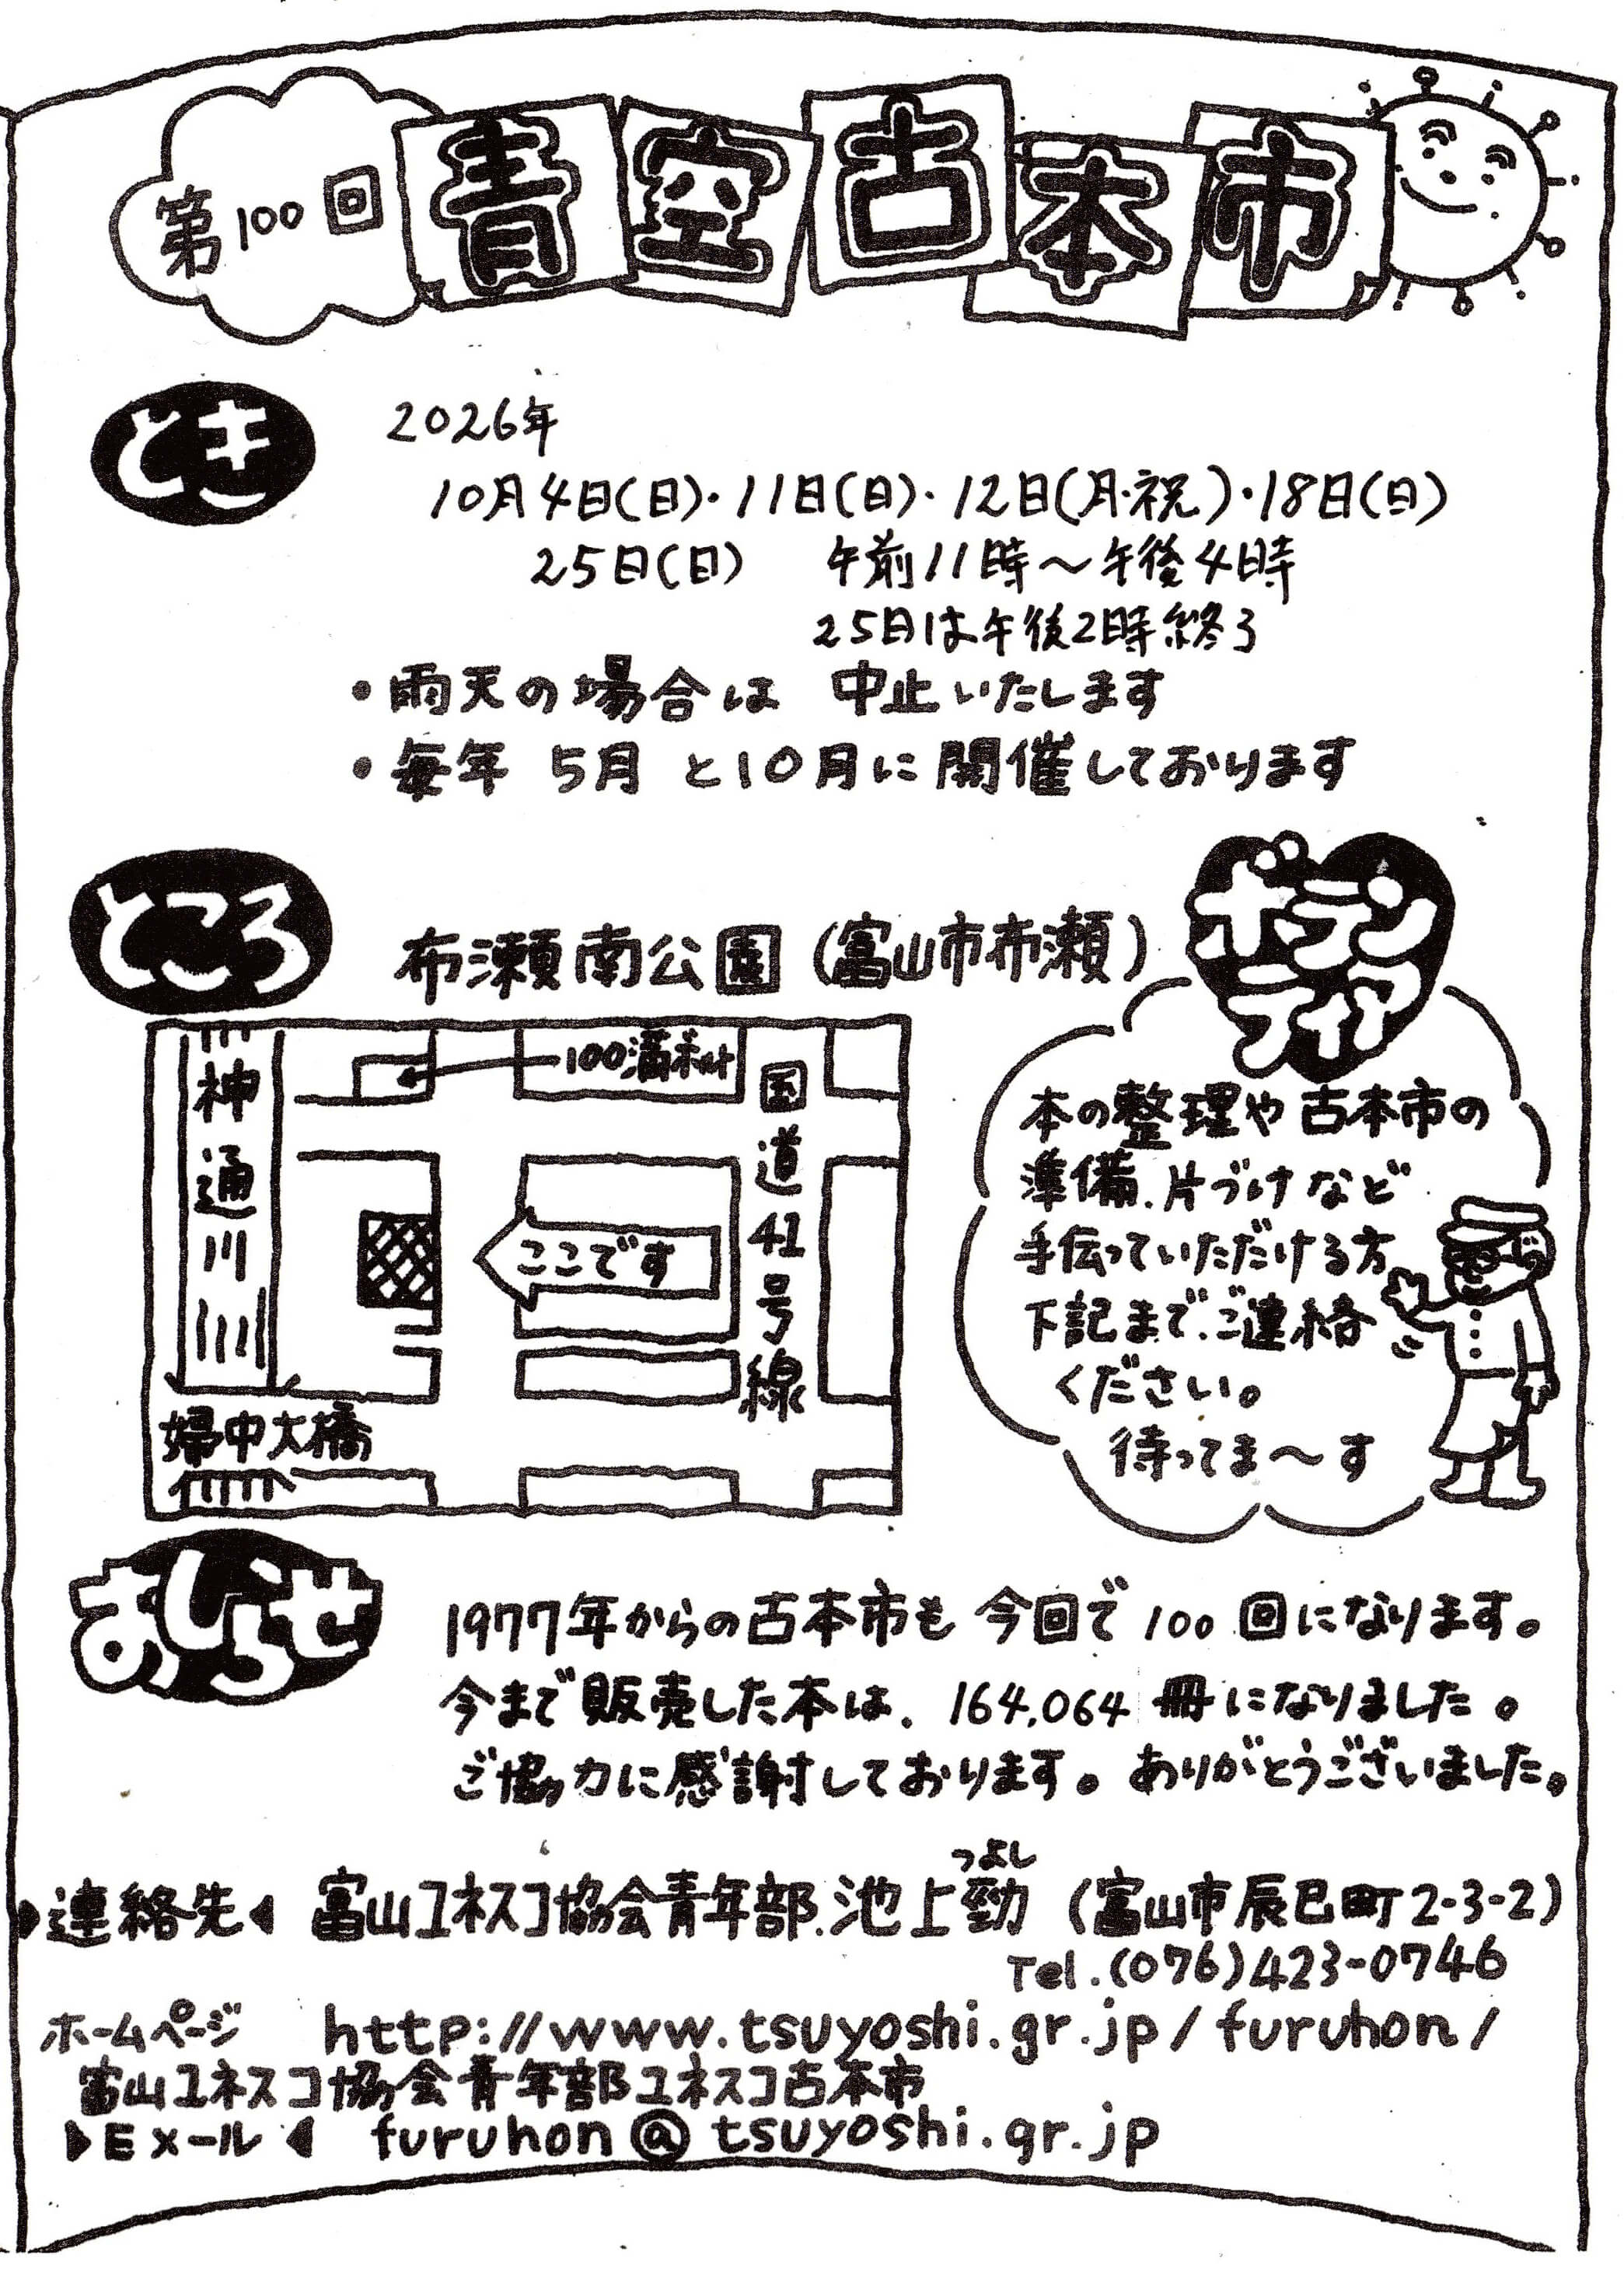 第100回 青空古本市
とき
2026年
10月4日(日)・11日(日)・12日(月・祝)・18日(日)
25日(日) 午前11時～午後4時
25日は午後2時終了
・雨天の場合は 中止いたします
・毎年 5月 と10月に開催しております
ところ
布瀬南公園(富山市布瀬)
神通川
100満ボルト
国道41号線
ここです
婦中大橋
ボランティア
本の整理や古本市の
準備、片づけなど
手伝っていただける方
下記まで、ご連絡
ください。
待ってま～す
おしらせ
1977年からの古本市も 今回で 100 回になります。
今まで販売した本は、164,064 冊になりました。
ご協力に感謝しております。ありがとうございました。
つよし
▶連絡先◀ 富山ユネスコ協会青年部、池上勁 (富山市辰巳町2-3-2)
Tel.(076)423-0746
ホームページ http://www.tsuyoshi.gr.jp/furuhon/
富山ユネスコ協会青年部ユネスコ古本市
▶Eメール◀ furuhon@tsuyoshi.gr.jp